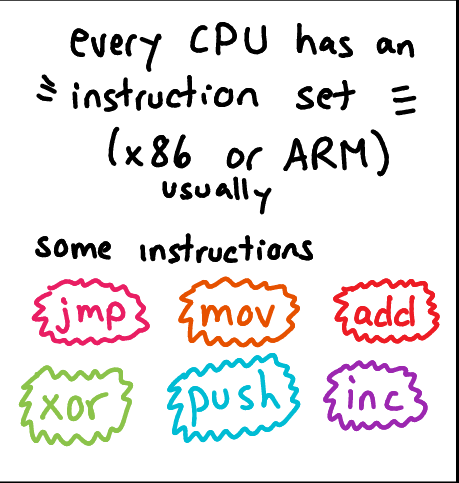 every CPU has an
instruction set
(x86 or ARM)
usually
some instructions
jmp mov add
xor push inc